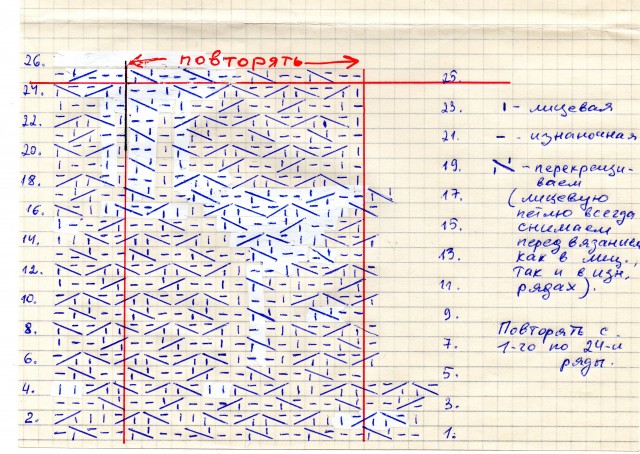 повторять
26.
24.
22.
20.
18.
16.
14.
12.
10.
8.
6.
4.
2.
25.
23.
21.
19.
17.
15.
13.
11.
9.
7.
5.
3.
1.
ı - лицевая
– - изнаночная
- перекрещи-
ваем
(лицевую
петлю всегда
снимаем
перед вязанием
как в лиц.,
так и в изн.
рядах).
Повторять с
1-го по 24-й
ряды.